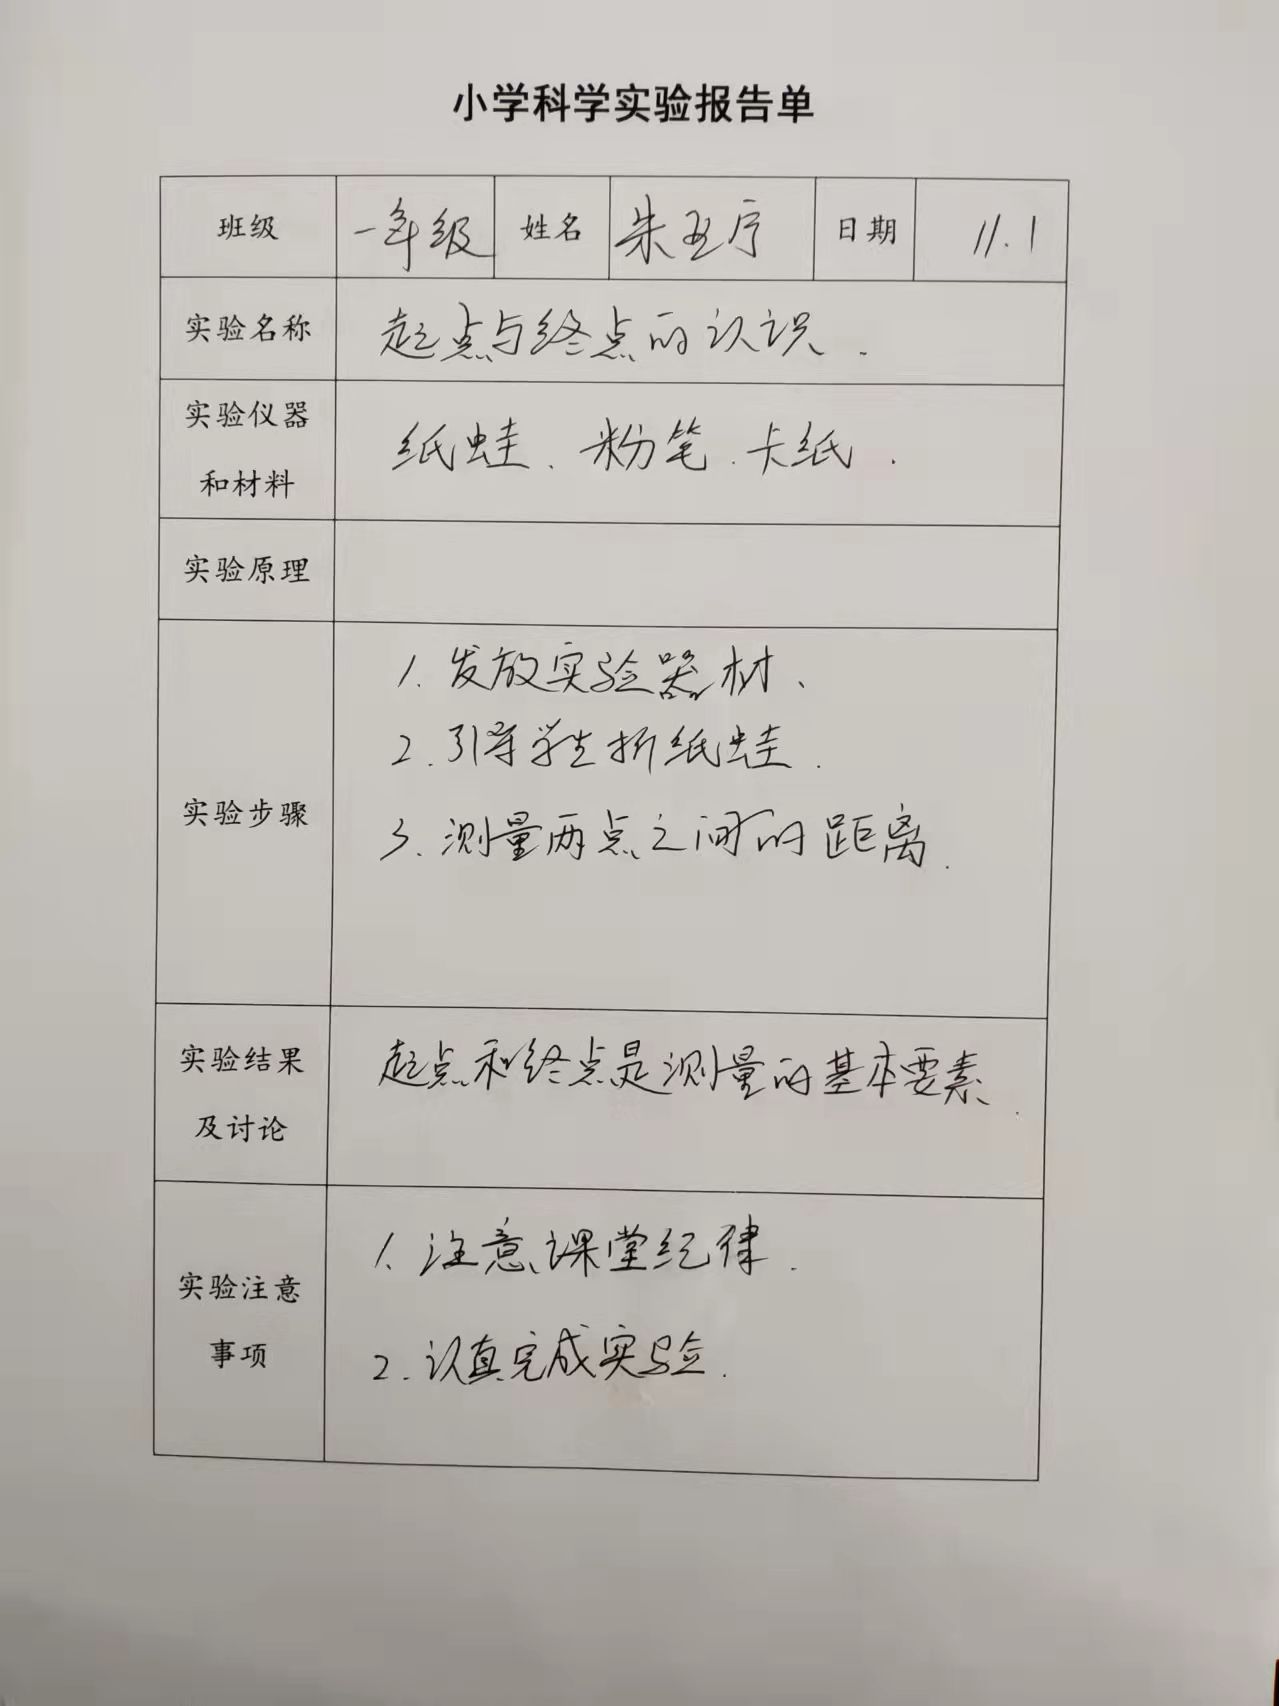 小学科学实验报告单
班级 一年级 姓名 朱玉序 日期 11.1
实验名称 起点与终点的认识.
实验仪器
和材料
纸蛙、粉笔.卡纸.
实验原理
实验步骤
1.发放实验器材、
2.引导学生折纸蛙.
3.测量两点之间的距离.
实验结果
及讨论
起点和终点是测量的基本要素.
实验注意
事项
1.注意课堂纪律.
2.认真完成实验.